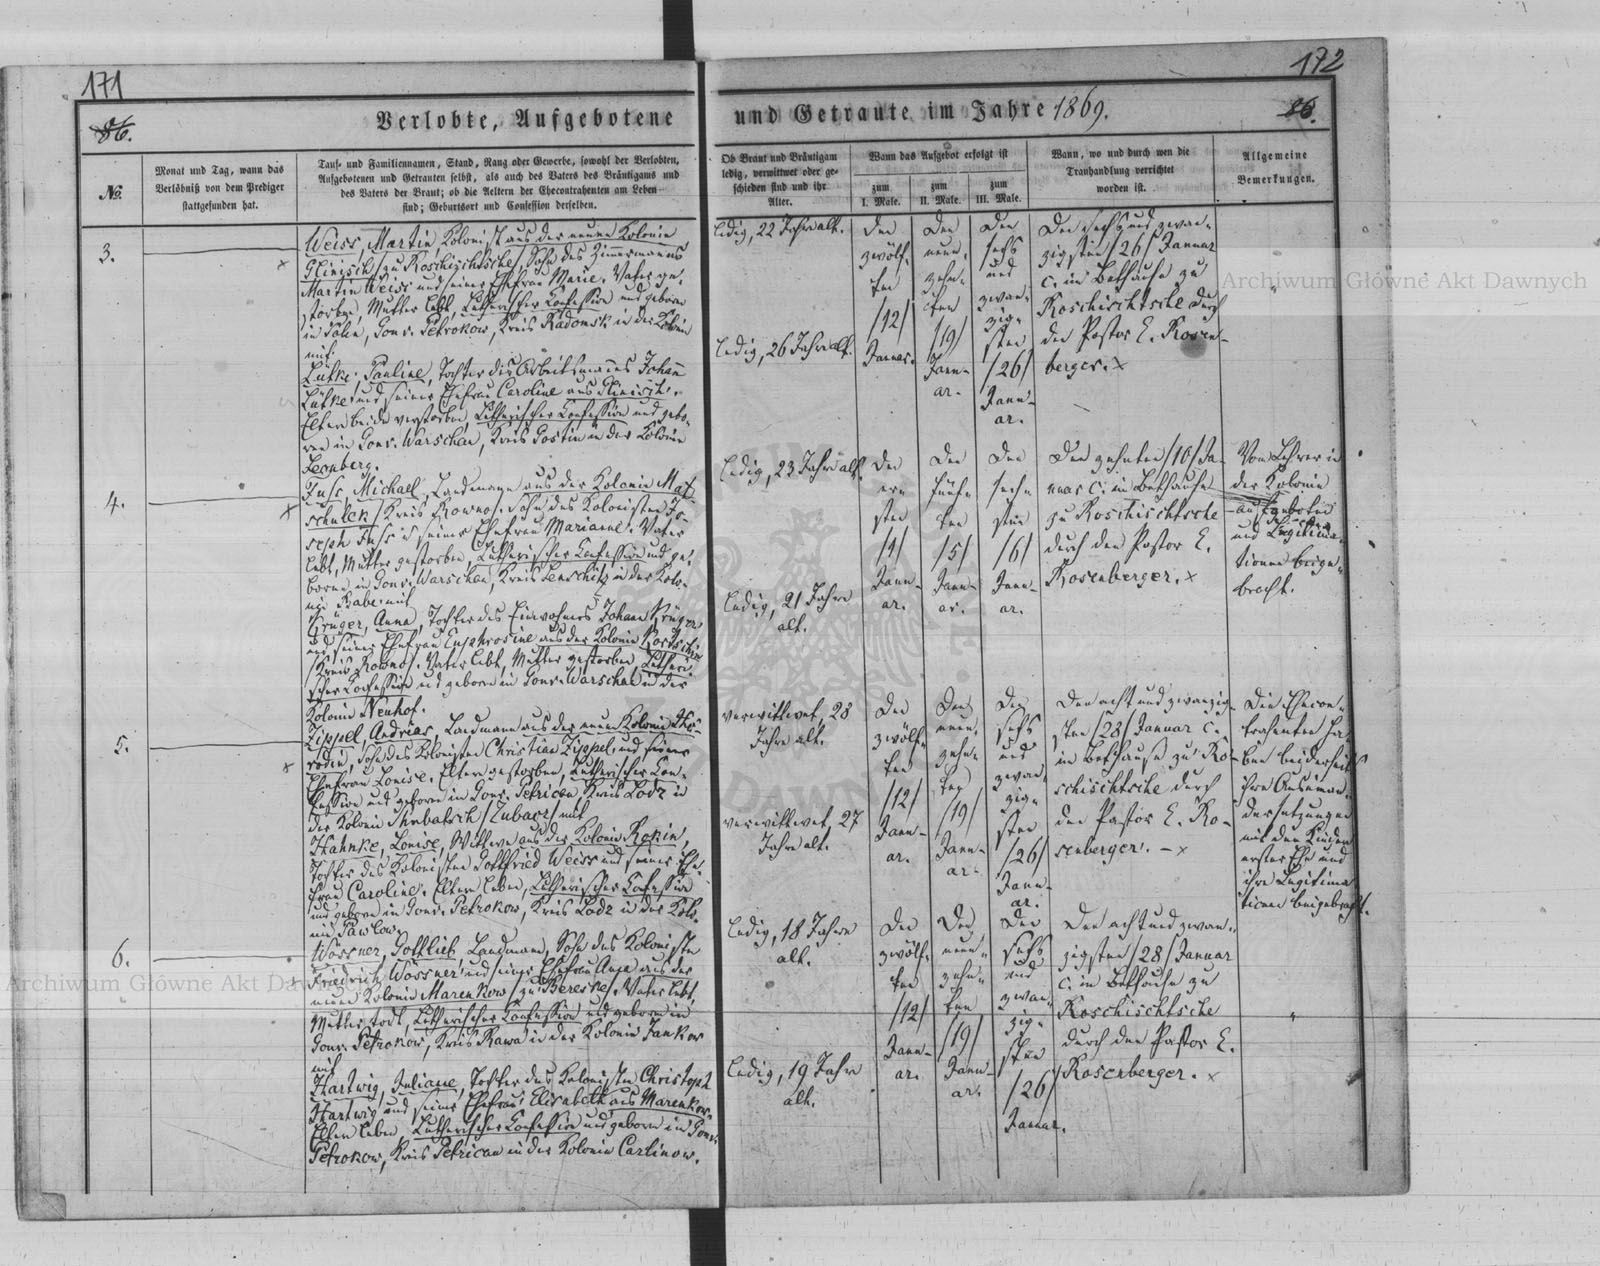 171
172
86.
86.
Verlobte, Aufgebotene
und Getraute im Jahre 1869.
№.
Monat und Tag, wann das
Verlöbniß von dem Prediger
stattgefunden hat.
Tauf- und Familiennamen, Stand, Rang oder Gewerbe, sowohl der Verlobten,
Aufgebotenen und Getrauten selbst, als auch des Vaters des Bräutigams und
des Vaters der Braut; ob die Aeltern der Ehecontrahenten am Leben
sind; Geburtsort und Confession derselben.
Ob Braut und Bräutigam
ledig, verwittwet oder ge-
schieden sind und ihr
Alter.
Wann das Aufgebot erfolgt ist
zum
I. Male.
zum
II. Male.
zum
III. Male.
Wann, wo und durch wen die
Trauhandlung verrichtet
worden ist.
Allgemeine
Bemerkungen.
3.
Weiss, Martin Kolonist aus der neuen Kolonie
Glinisch /zu Roschischtsche/, Sohn des Zimmermanns
Martin Weiss und seiner Ehefrau Marie. Vater ge-
storben, Mutter lebt, Lutherischer Confession und geboren
in Gouv. Petrokow, Kreis Radomsk in der Kolonie
mit
Lütke, Pauline, Tochter des Arbeitsmannes Johann
Lütke und seiner Ehefrau Caroline aus Glinisch.
Eltern beide verstorben, Lutherischer Confession und gebo-
ren in Gouv. Warschau, Kreis Gostin in der Kolonie
Leonberg.
ledig, 22 Jahre alt.
ledig, 26 Jahre alt.
Den
zwölf-
ten
/12/
Januar.
Den
neun-
zehn-
ten
/19/
Janu-
ar.
Den
sechs
und
zwan-
zig-
sten
/26/
Janu-
ar.
Den sechs und zwan-
zigsten /26/ Januar
c. im Bethause zu
Roschischtsche durch
den Pastor E. Rosen-
berger. x
4.
Fuss, Michael, Landmann aus der Kolonie Mat-
schulek /Kreis Rowno/. Sohn des Kolonisten Jo-
seph Fuss u seiner Ehefrau Marianne. Vater
lebt, Mutter gestorben, Lutherischer Confession und ge-
boren in Gouv. Warschau, Kreis Lentschitz in der Kolo-
nie Babe mit
Krüger, Anna, Tochter des Einwohners Johann Krüger
und seiner Ehefrau Euphrosine aus der Kolonie
/Kreis Rowno/. Vater lebt, Mutter gestorben, Lutheri-
scher Confession und geboren in Gouv. Warschau in der
Kolonie Neuhof.
ledig, 23 Jahre alt.
ledig, 21 Jahre
alt.
Den
er-
sten
/1/
Janu-
ar.
Den
fünf-
ten
/5/
Janu-
ar.
Den
sech-
sten
/6/
Janu-
ar.
Den zehnten /10/ Ja-
nuar c. im Bethause
zu Roschischtsche
durch den Pastor E.
Rosenberger. x
Vom Lehrer in
der Kolonie
aufgeboten
und Legitima-
tionen beige-
bracht.
5.
Zippel, Andreas, Landmann aus der neuen Kolonie
Sohn des Kolonisten Christian Zippel und seiner
Ehefrau Louise. Eltern gestorben, Lutherischer Con-
fession und geboren in Gouv. Petricau Kreis Lodz in
der Kolonie /Lubacz/ mit
Hahnke, Louise, Wittwe aus der Kolonie Rokin,
Tochter des Kolonisten Gottfried Weiss und seiner Ehe-
frau Caroline. Eltern leben, Lutherischer Confession
und geboren in Gouv. Petrokow, Kreis Lodz in der Kolo-
nie Pawlow.
verwittwet, 28
Jahre alt.
verwittwet 27
Jahre alt.
Den
zwölf-
ten
/12/
Janu-
ar.
Den
neun-
zehn-
ten
/19/
Janu-
ar.
Den
sechs
und
zwan-
zig-
sten
/26/
Janu-
ar.
Den acht und zwanzig-
sten /28/ Januar c.
im Bethause zu Ro-
schischtsche durch
den Pastor E. Ro-
senberger. — x
Die Ehecon-
trahenten ha-
ben beiderseits
ihre Auseinan-
dersetzungen
mit den Kindern
erster Ehe und
ihre Legitima-
tionen beigebracht.
6.
Wössner, Gottlieb, Landmann, Sohn des Kolonisten
Friedrich Wössner und seiner Ehefrau Anna aus der
neuen Kolonie Marenkow /zu Bereske/. Vater lebt,
Mutter todt, Lutherischer Confession und geboren in
Gouv. Petrokow, Kreis Rawa in der Kolonie Jankow
mit
Hartwig, Juliane, Tochter des Kolonisten Christoph
Hartwig und seiner Ehefrau Elisabeth aus Marenkow.
Eltern leben, Lutherischer Confession und geboren in Gouv.
Petrokow, Kreis Petricau in der Kolonie Carlinow.
ledig, 18 Jahre
alt.
ledig, 19 Jahre
alt.
Den
zwölf-
ten
/12/
Janu-
ar.
Den
neun-
zehn-
ten
/19/
Janu-
ar.
Den
sechs
und
zwan-
zig-
sten
/26/
Januar.
Den acht und zwan-
zigsten /28/ Januar
c. im Bethause zu
Roschischtsche
durch den Pastor E.
Rosenberger. x
Archiwum Główne Akt Dawnych
Archiwum Główne Akt Dawnych